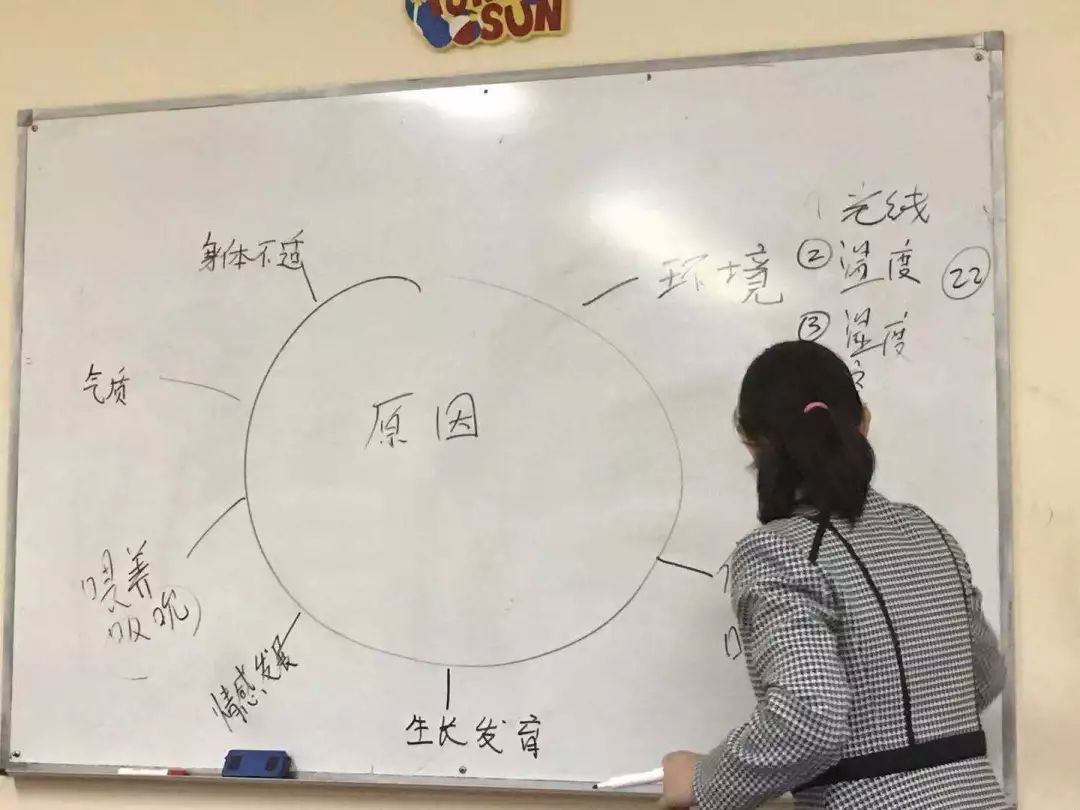 SUN
光线
身体不适
环境
② 温度 ㉒
③ 湿度
气质
原因
喂养
吸吮)
情感发展
生长发育